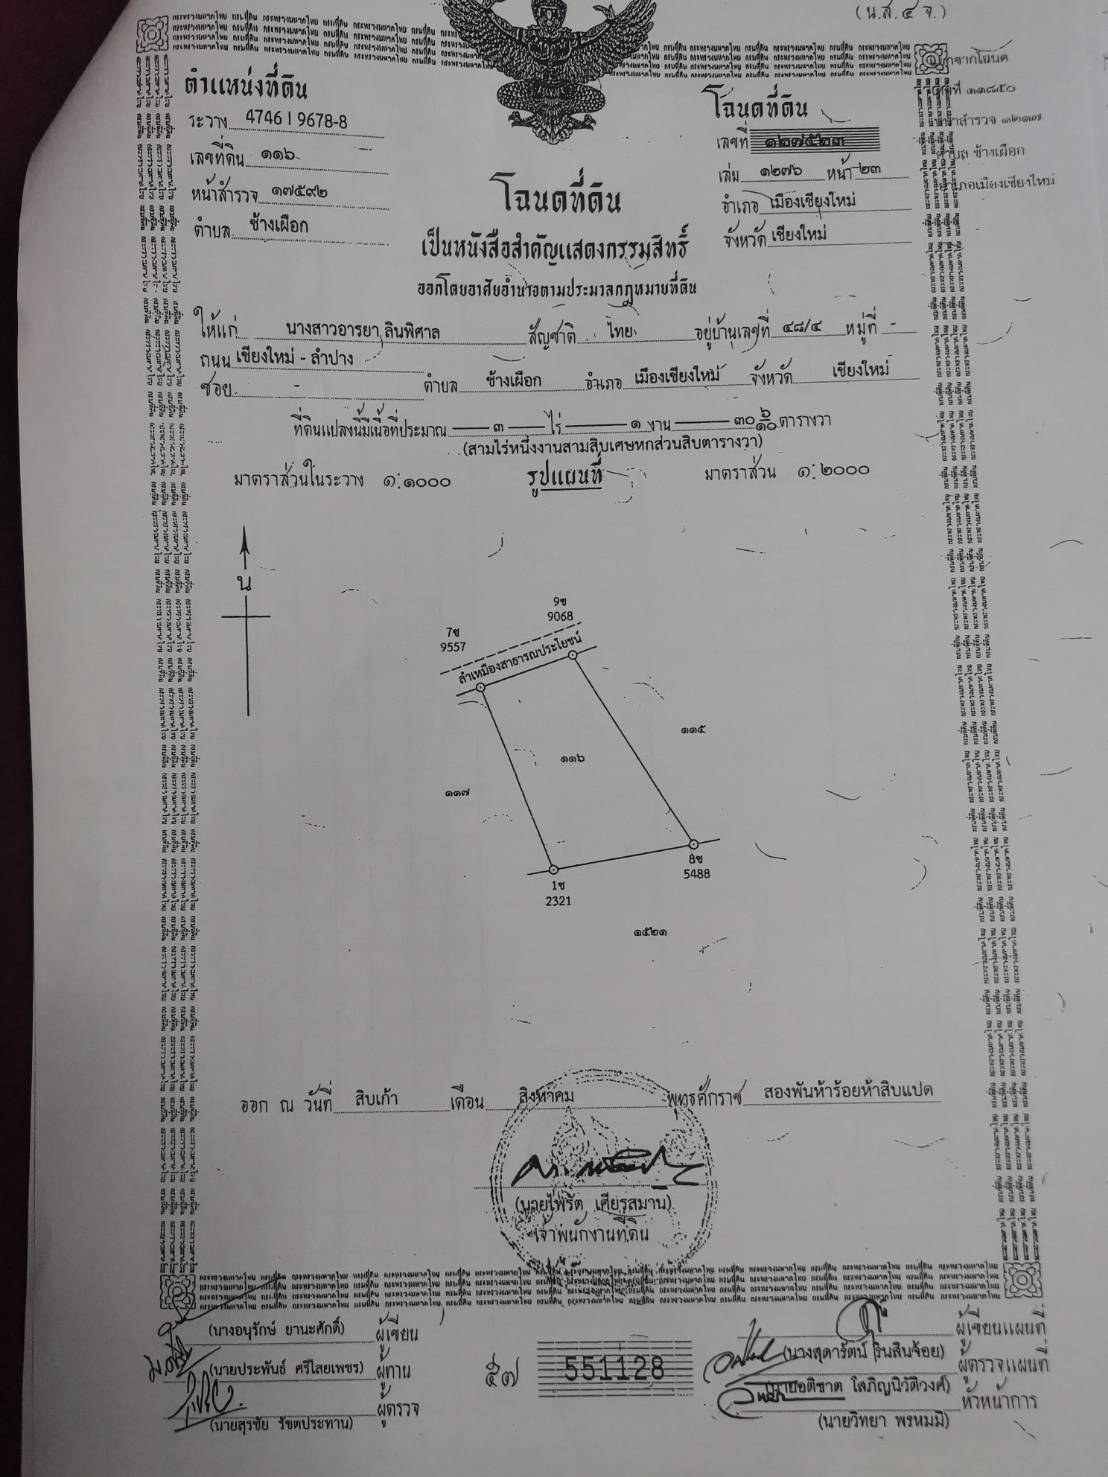 (น.ส.๔ จ.)
ตำแหน่งที่ดิน
ระวาง 4746 I 9678-8
เลขที่ดิน ๑๑๖
หน้าสำรวจ ๑๗๕๙๒
ตำบล ช้างเผือก
โฉนดที่ดิน
เลขที่ ๑๒๗๕๒๓
เล่ม ๑๒๗๖ หน้า ๒๓
อำเภอ เมืองเชียงใหม่
จังหวัด เชียงใหม่
ช้างเผือก
โฉนดที่ดิน
เป็นหนังสือสำคัญแสดงกรรมสิทธิ์
ออกโดยอาศัยอำนาจตามประมวลกฎหมายที่ดิน
ให้แก่ นางสาวอารยา ลินพิศาล สัญชาติ ไทย อยู่บ้านเลขที่ ๔๘/๔ หมู่ที่ -
ถนน เชียงใหม่ - ลำปาง
ซอย - ตำบล ช้างเผือก อำเภอ เมืองเชียงใหม่ จังหวัด เชียงใหม่
ที่ดินแปลงนี้มีเนื้อที่ประมาณ ๓ ไร่ ๑ งาน ๓๐ ๖/๑๐ ตารางวา
(สามไร่หนึ่งงานสามสิบเศษหกส่วนสิบตารางวา)
มาตราส่วนในระวาง ๑:๑๐๐๐ รูปแผนที่ มาตราส่วน ๑:๒๐๐๐
น
9ช
9068
7ช
9557
ลำเหมืองสาธารณประโยชน์
๑๑๕
๑๑๖
๑๑๗
8ช
5488
1ช
2321
๑๕๒๑
ออก ณ วันที่ สิบเก้า เดือน สิงหาคม พุทธศักราช สองพันห้าร้อยห้าสิบแปด
(นายไพรัต เศียรสมาน)
เจ้าพนักงานที่ดิน
(นางอนุรักษ์ ยานะศักดิ์) ผู้เขียน
(นายประพันธ์ ศรีไสยเพชร) ผู้ทาน
(นายสุรชัย รัชตประทาน) ผู้ตรวจ
๕๗ 551128
ผู้เขียนแผนที่
(นางสุดารัตน์ รินสินจ้อย) ผู้ตรวจแผนที่
(นายอติชาต โสภิญนิวัติวงศ์) หัวหน้าการ
(นายวิทยา พรหมมิ)